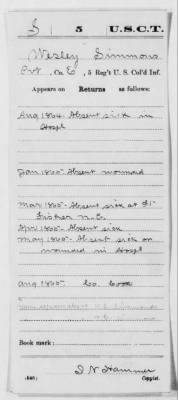 S | 5 | U.S.C.T.
Wesley Simmons
Pvt, Co. E, 5 Reg't U. S. Col'd Inf.
Appears on Returns as follows:
Aug 1864. Absent sick in
Hospl
Jan 1865- Absent wounded
Mar 1865- Absent sick at Ft
Fisher N.C.
Apr 1865- Absent sick
May 1865- Absent sick or
wounded in Hospl
Aug 1865- Co. Cook
Book mark:
Copyist.